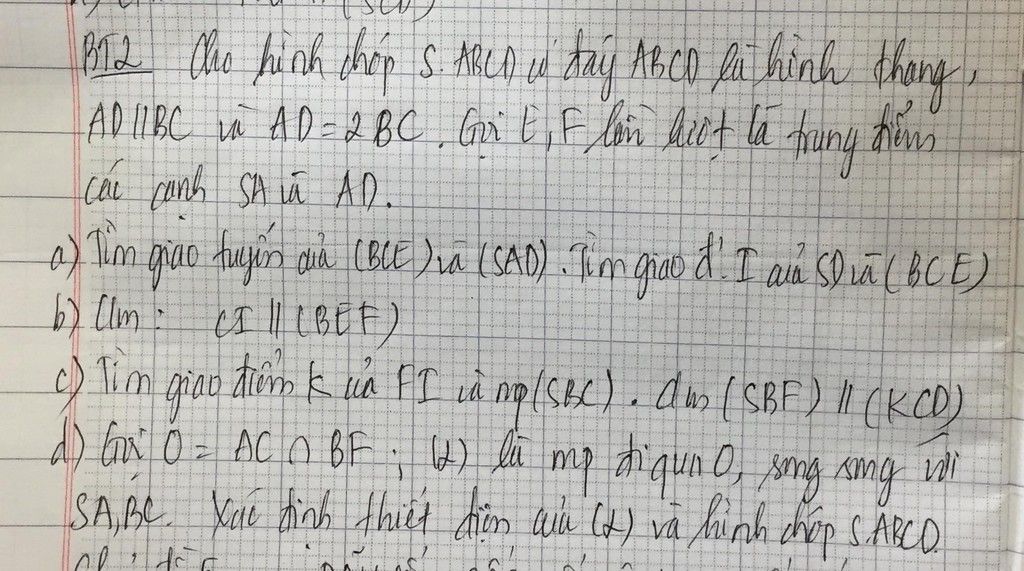 (SCD)
BT2 Cho hình chóp S.ABCD có đáy ABCD là hình thang,
AD//BC và AD = 2BC. Gọi E, F lần lượt là trung điểm
các cạnh SA và AD.
a) Tìm giao tuyến của (BCE) và (SAD). Tìm giao đ' I của SD và (BCE)
b) Cm: CI // (BEF)
c) Tìm giao điểm K của FI và mp(SBC). Cm (SBF) // (KCD)
d) Gọi O = AC ∩ BF; (α) là mp đi qua O, song song với
SA, BC. Xác định thiết diện của (α) và hình chóp S.ABCD.